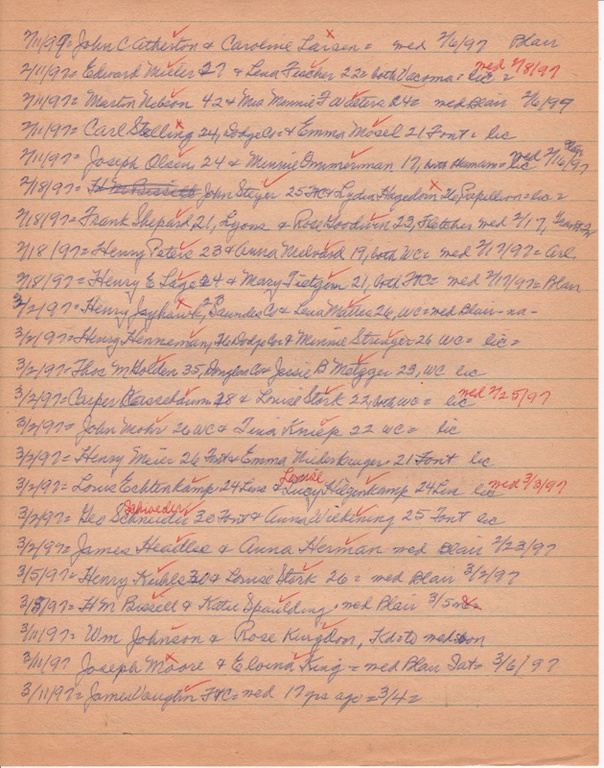 2/11/97= John C Atherton & Caroline Larsen = med 2/6/97 Blair
2/11/97= Edward Mueller 27 & Lena Fischer 22= both Vacoma= lic = med 2/8/97
2/11/97= Martin Nelson 42 & Mrs Minnie F Waters 24= med Blair 2/6/97
2/11/97= Carl Stelling 24, Dodge Co= & Emma Mosel 21 Font= lic
2/11/97= Joseph Olsen 24 & Minnie Ommerman 17, both Herman= lic med 2/16/97
2/18/97= H M Bissell John Steyer 25 & Lydia Hagedorn 26 Papillion= lic =
2/18/97= Frank Shepard 21, Lyons & Rose Goodwin 23, Fletcher med 2/17,
2/18/97= Henry Peters 23 & Anna 19, both WC= med 2/17/97= Arl
2/18/97= Henry E Sage 24 & Mary Tietgen 21, both = med 2/17/97= Blair
3/2/97= Henry Jayhawk, Saunders Co & Lena Mattes 26, WC= med Blair- na-
3/2/97= Henry Henneman, Dodge Co & Minnie Strenger 26 WC = lic =
3/2/97= Thos M Golden 35, Douglas Co= Jessie B Metzger 23, WC lic
3/2/97= Casper 28 & Louise Stork 22, both WC= lic med 2/25/97
3/2/97= John Mohr 26 WC & Tena Kniep 22 WC = lic
3/2/97= Henry Meier 26 Font & Emma Niderkruger- 21 Font lic
3/2/97= Louis Echtenkamp 24 Linc & Lucy Louise Hilgenkamp 24 Lin lic med 3/3/97
3/2/97= Geo Schneider Schweder 30 Font & Anna Wiekining 25 Font lic
3/2/97= James Headlee & Anna Herman med Blair 2/23/97
3/5/97= Henry Kuhls 30 & Louise Stork 26 = med Blair 3/2/97
3/5/97= H M Bissell & Katie Spaulding- med Blair 3/5
3/11/97= Wm Johnson & Rose Kingdon, Kd= to med soon
3/11/97 Joseph Moore & Elvina King = med Blair Sat= 3/6/97
3/11/97= James Vaughn = med 17 yrs ago = 3/4 =